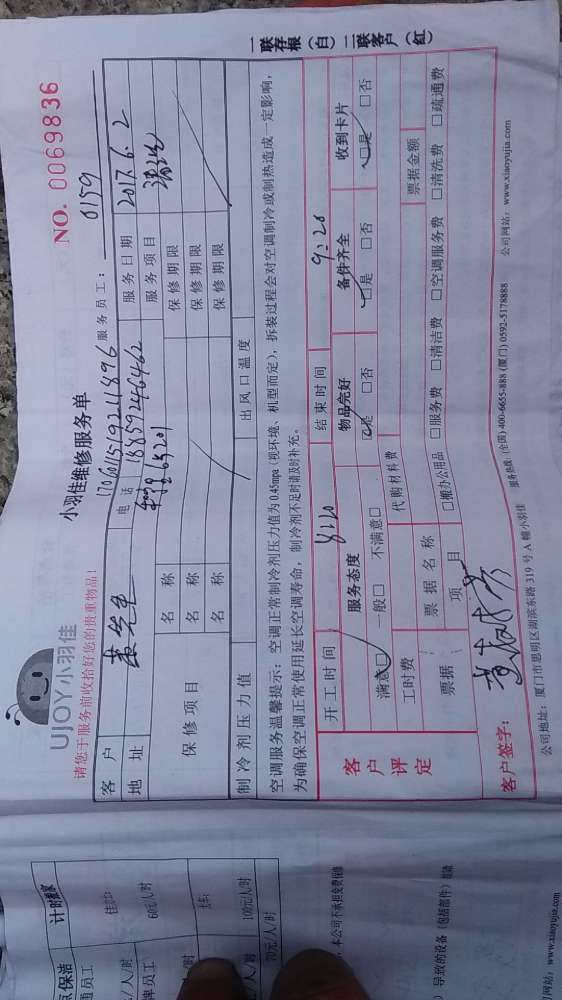 UJOY小羽佳
小羽佳维修服务单
NO. 0069836
请您于服务前收拾好您的贵重物品!
1706011519211896
服务员工: 0159
客户
电话 18859246462
服务日期 2017.6.2
地址
服务项目
保修项目
名称
保修期限
名称
保修期限
名称
保修期限
制冷剂压力值
出风口温度
空调服务温馨提示:空调正常制冷剂压力值为0.45mpa(视环境、机型而定),拆装过程会对空调制冷或制热造成一定影响,
为确保空调正常使用延长空调寿命,制冷剂不足时请及时补充。
客户评定
开工时间 8:20
结束时间 9:20
服务态度
物品完好
备件齐全
收到卡片
满意□ 一般□ 不满意□
□是 □否
□是 □否
□是 □否
工时费
代购材料费
票据金额
票据
票据名称
项目
□搬办公用品 □服务费 □清洁费 □空调服务费 □清洗费 □疏通费
客户签字:
公司地址:厦门市思明区湖滨东路319号A幢小羽佳
服务热线:(全国)400-6655-888 (厦门)0592-5178888
公司网站:www.xiaoyujia.com
一联存根(白)二联客户(红)
计时
60元/人/时
100元/人/时
70元/人/时
本公司不承担免费保修
导致的设备(包括部件)
网站:www.xiaoyujia.com